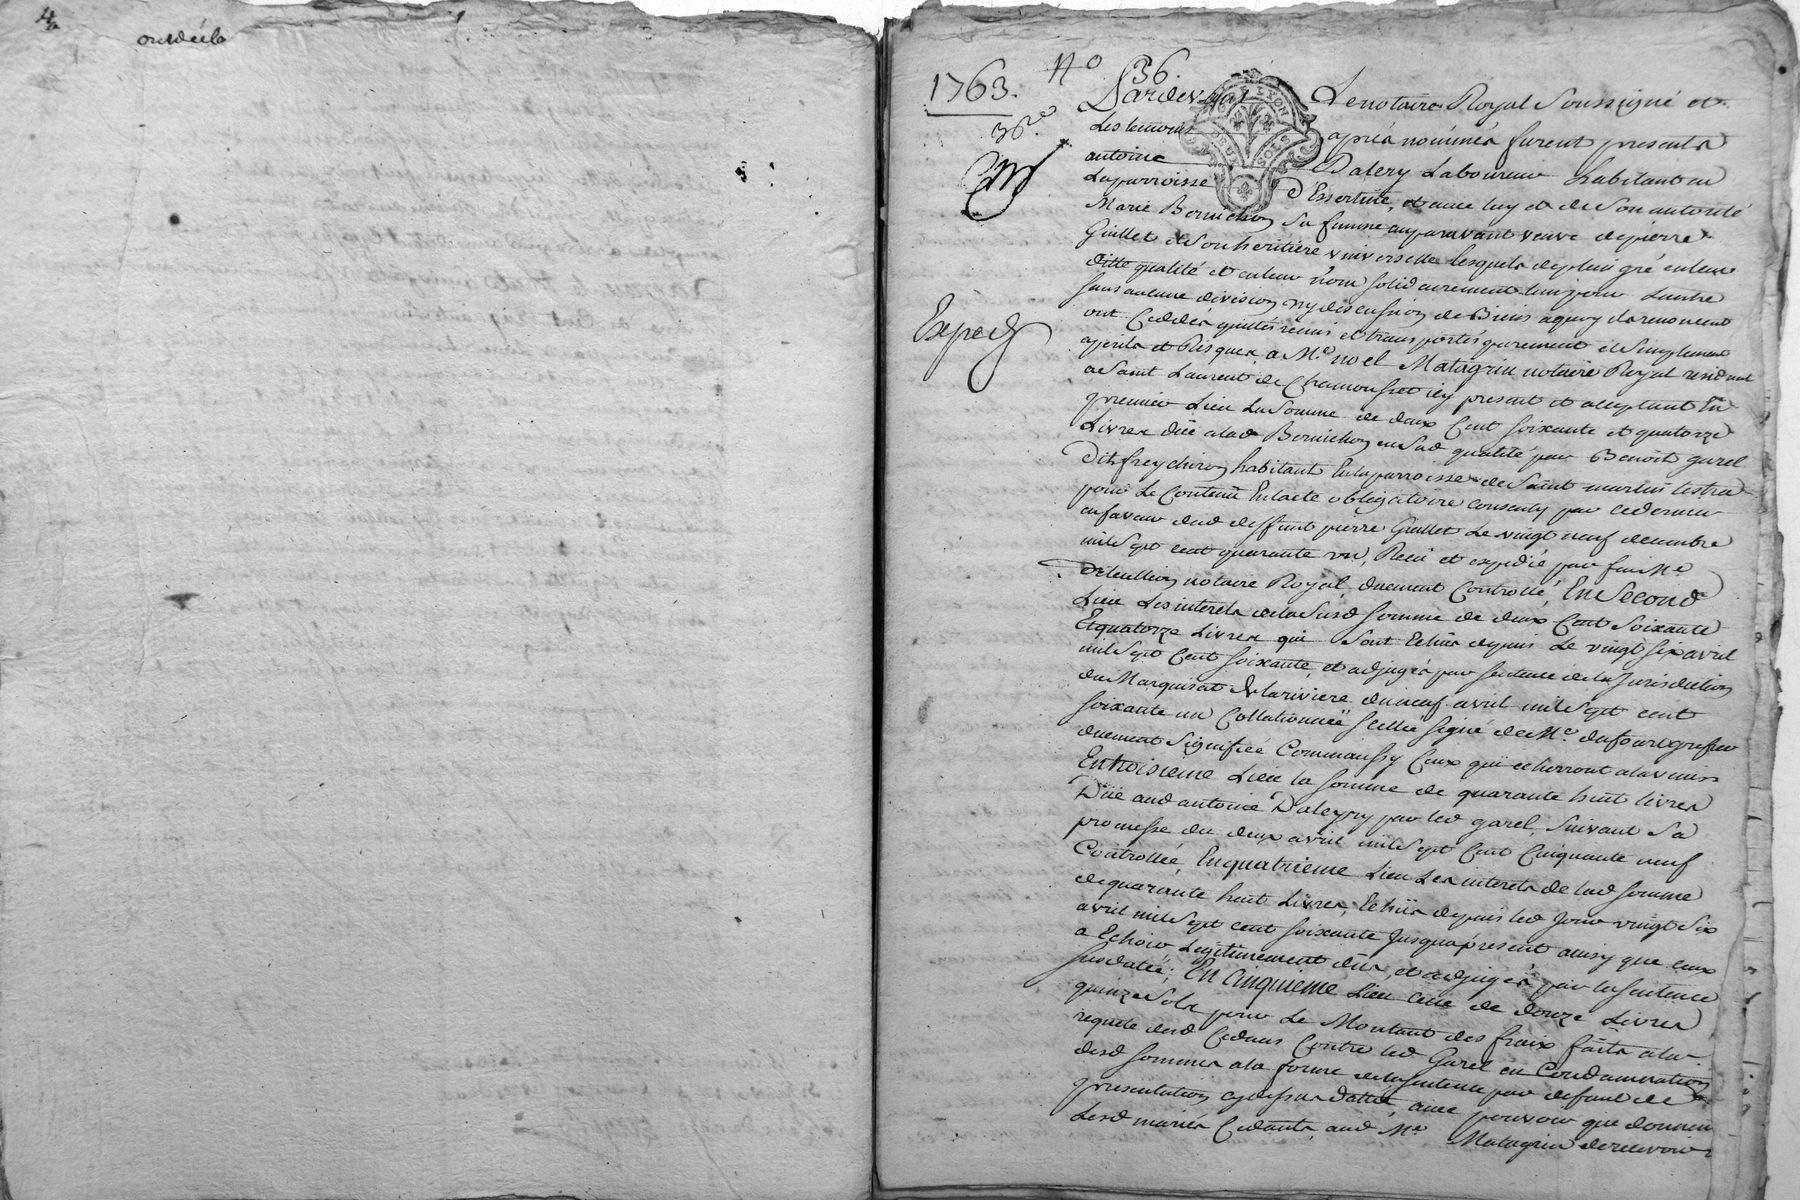 4
1763.
No 36.
36re
Exped
Pardevant Le notaire Royal Soussigné et
Les temoins apréa nomméa furent presenta
antoine Dalery Laboureur habitant en
La parroisse D'Essertine, et avec luy et de Son autorité
Marie Bernichon Sa femme auparavant veuve de pierre
Guillet et Son heritiere universelle lesquels de plein gré en leur
ditte qualité et en leur nom solidairement l'un pour Lautre
sans aucune division ny discussion de Biens a quoy ils renoncent
ont Ceddéa quittéa remis et transportéa purement et Simplement
a perila et Risquea a Me. noel Matagrin notaire Royal residant
a Saint Laurent de Chamousset icy present et acceptant En
premier Lieu La Somme de deux Cent soixante et quatorze
Livrea düe a lad Bernichon en Sad qualité par Benoit garel
Dit freychiron habitant En la parroisse de Saint martin lestra
pour Le Contenu En lacte obligatoire consenty par ce dernier
en faveur dud deffunt pierre Guillet Le vingt neuf decembre
mil Sept cent quarante un, Receu et expedié par feu Me.
notaire Royal, duement Controllé, En Second
Lieu Les interets de la Susd somme de deux Cent Soixante
Et quatorze Livrea qui Sont Echus depuis Le vingt Six avril
mil Sept Cent soixante, et adjugéa par Sentence de la Jurisdiction
du Marquisat de la riviere du neuf avril mil Sept cent
soixante un Collationnée Scellée Signé de Me. dufour greffier
duement Signifiée Comme aussy Ceux qui echerront a lavenir
En troisieme Lieu la Somme de quarante huit livrea
Düe aud antoine Daleyry par led garel, Suivant Sa
promesse du deux avril mil Sept Cent Cinquante neuf
Controllée, En quatrieme Lieu Les interets de lad somme
de quarante huit Livrea, Echus depuis led Jour vingt Six
avril mil Sept cent soixante Jusqua present ainsy que ceux
a Echoir Legitimement dûs, et adjugéa par la Sentence
susdatée; En Cinquieme Lieu celle de douze Livrea
quinze Sols pour Le Montant des fraix faits a la
requete desd Cedans Contre led Garel en Condamnation
desd sommea a la forme de la Sentence par defaut de
presentation cy dessus dattée, avec pouvoir que donnent
Lesd mariéa Cedants, aud Me. Matagrin de recevoir